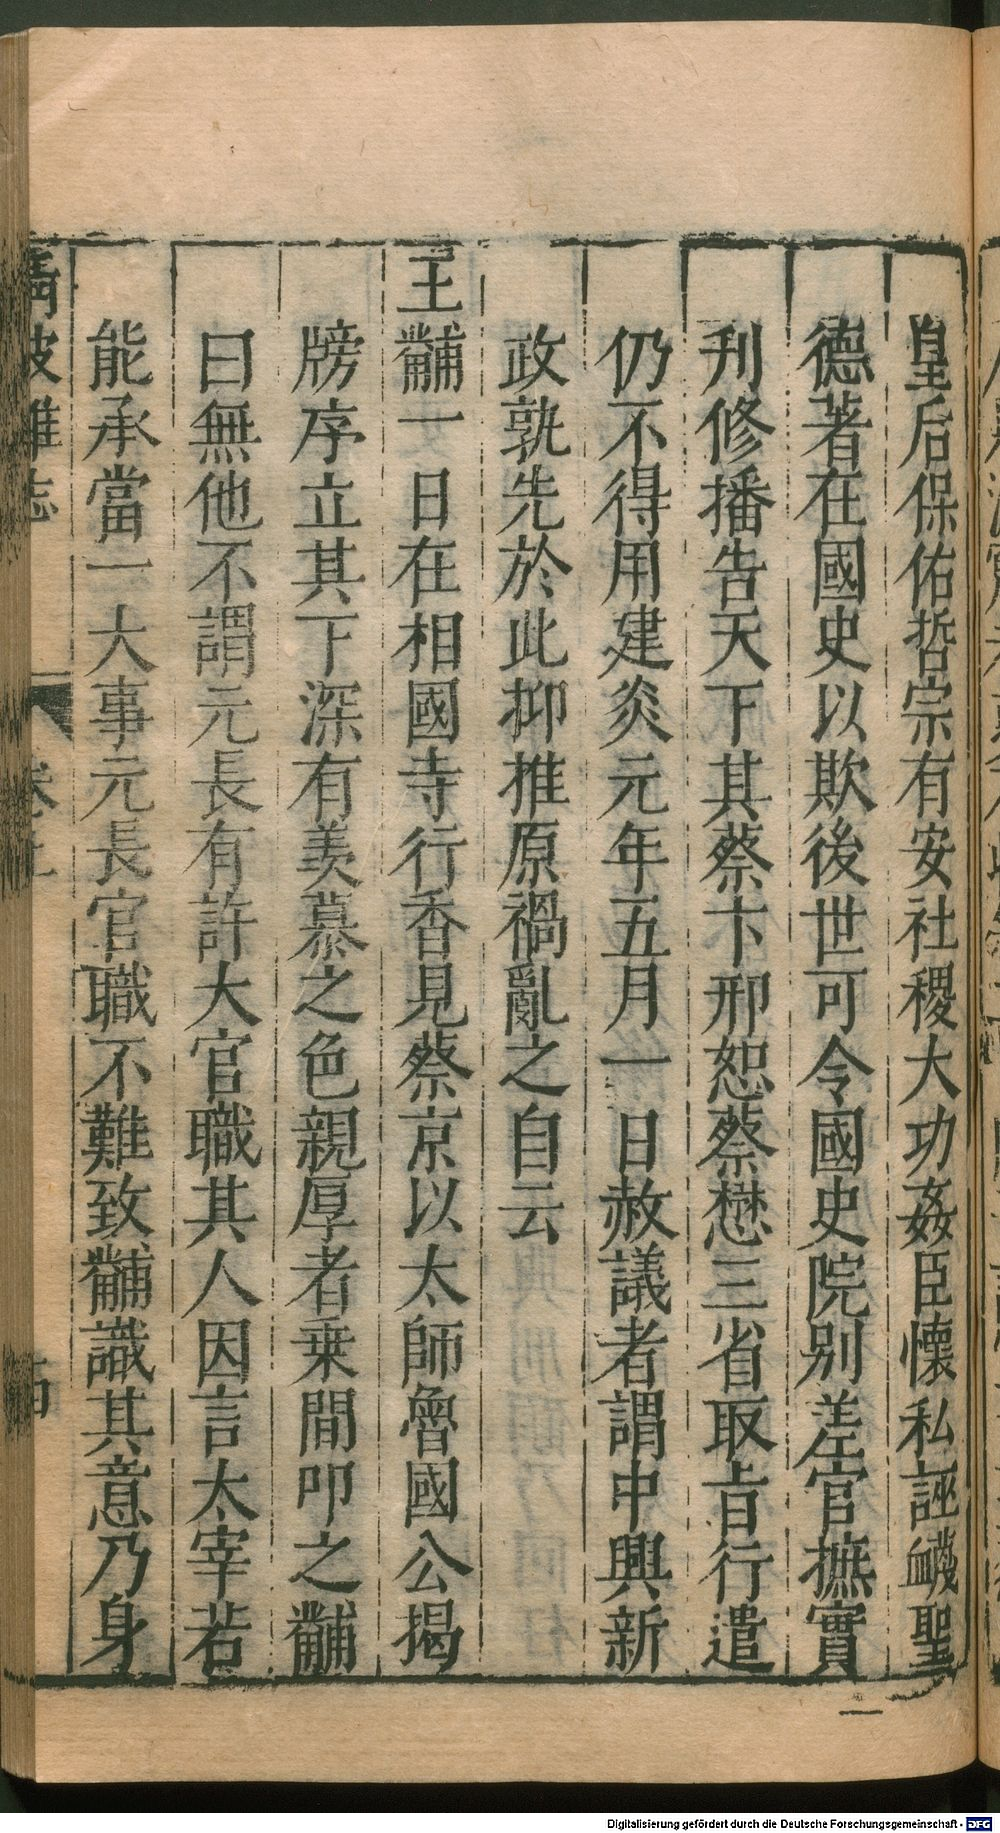 皇后保佑哲宗有安社稷大功姦臣懷私誣衊聖
德著在國史以欺後世可令國史院别差官摭實
刋修播告天下其蔡卞邢恕蔡懋三省取㫖行遣
仍不得用建炎元年五月一日赦議者謂中興新
政孰先於此抑推原禍亂之自云
王黼一日在相國寺行香見蔡京以太師魯國公揭
牓序立其下深有羡慕之色親厚者乗間叩之黼
曰無他不謂元長有許大官職其人因言太宰若
能承當一大事元長官職不難致黼識其意乃身
清波雜志 卷二
Digitalisierung gefördert durch die Deutsche Forschungsgemeinschaft - DFG